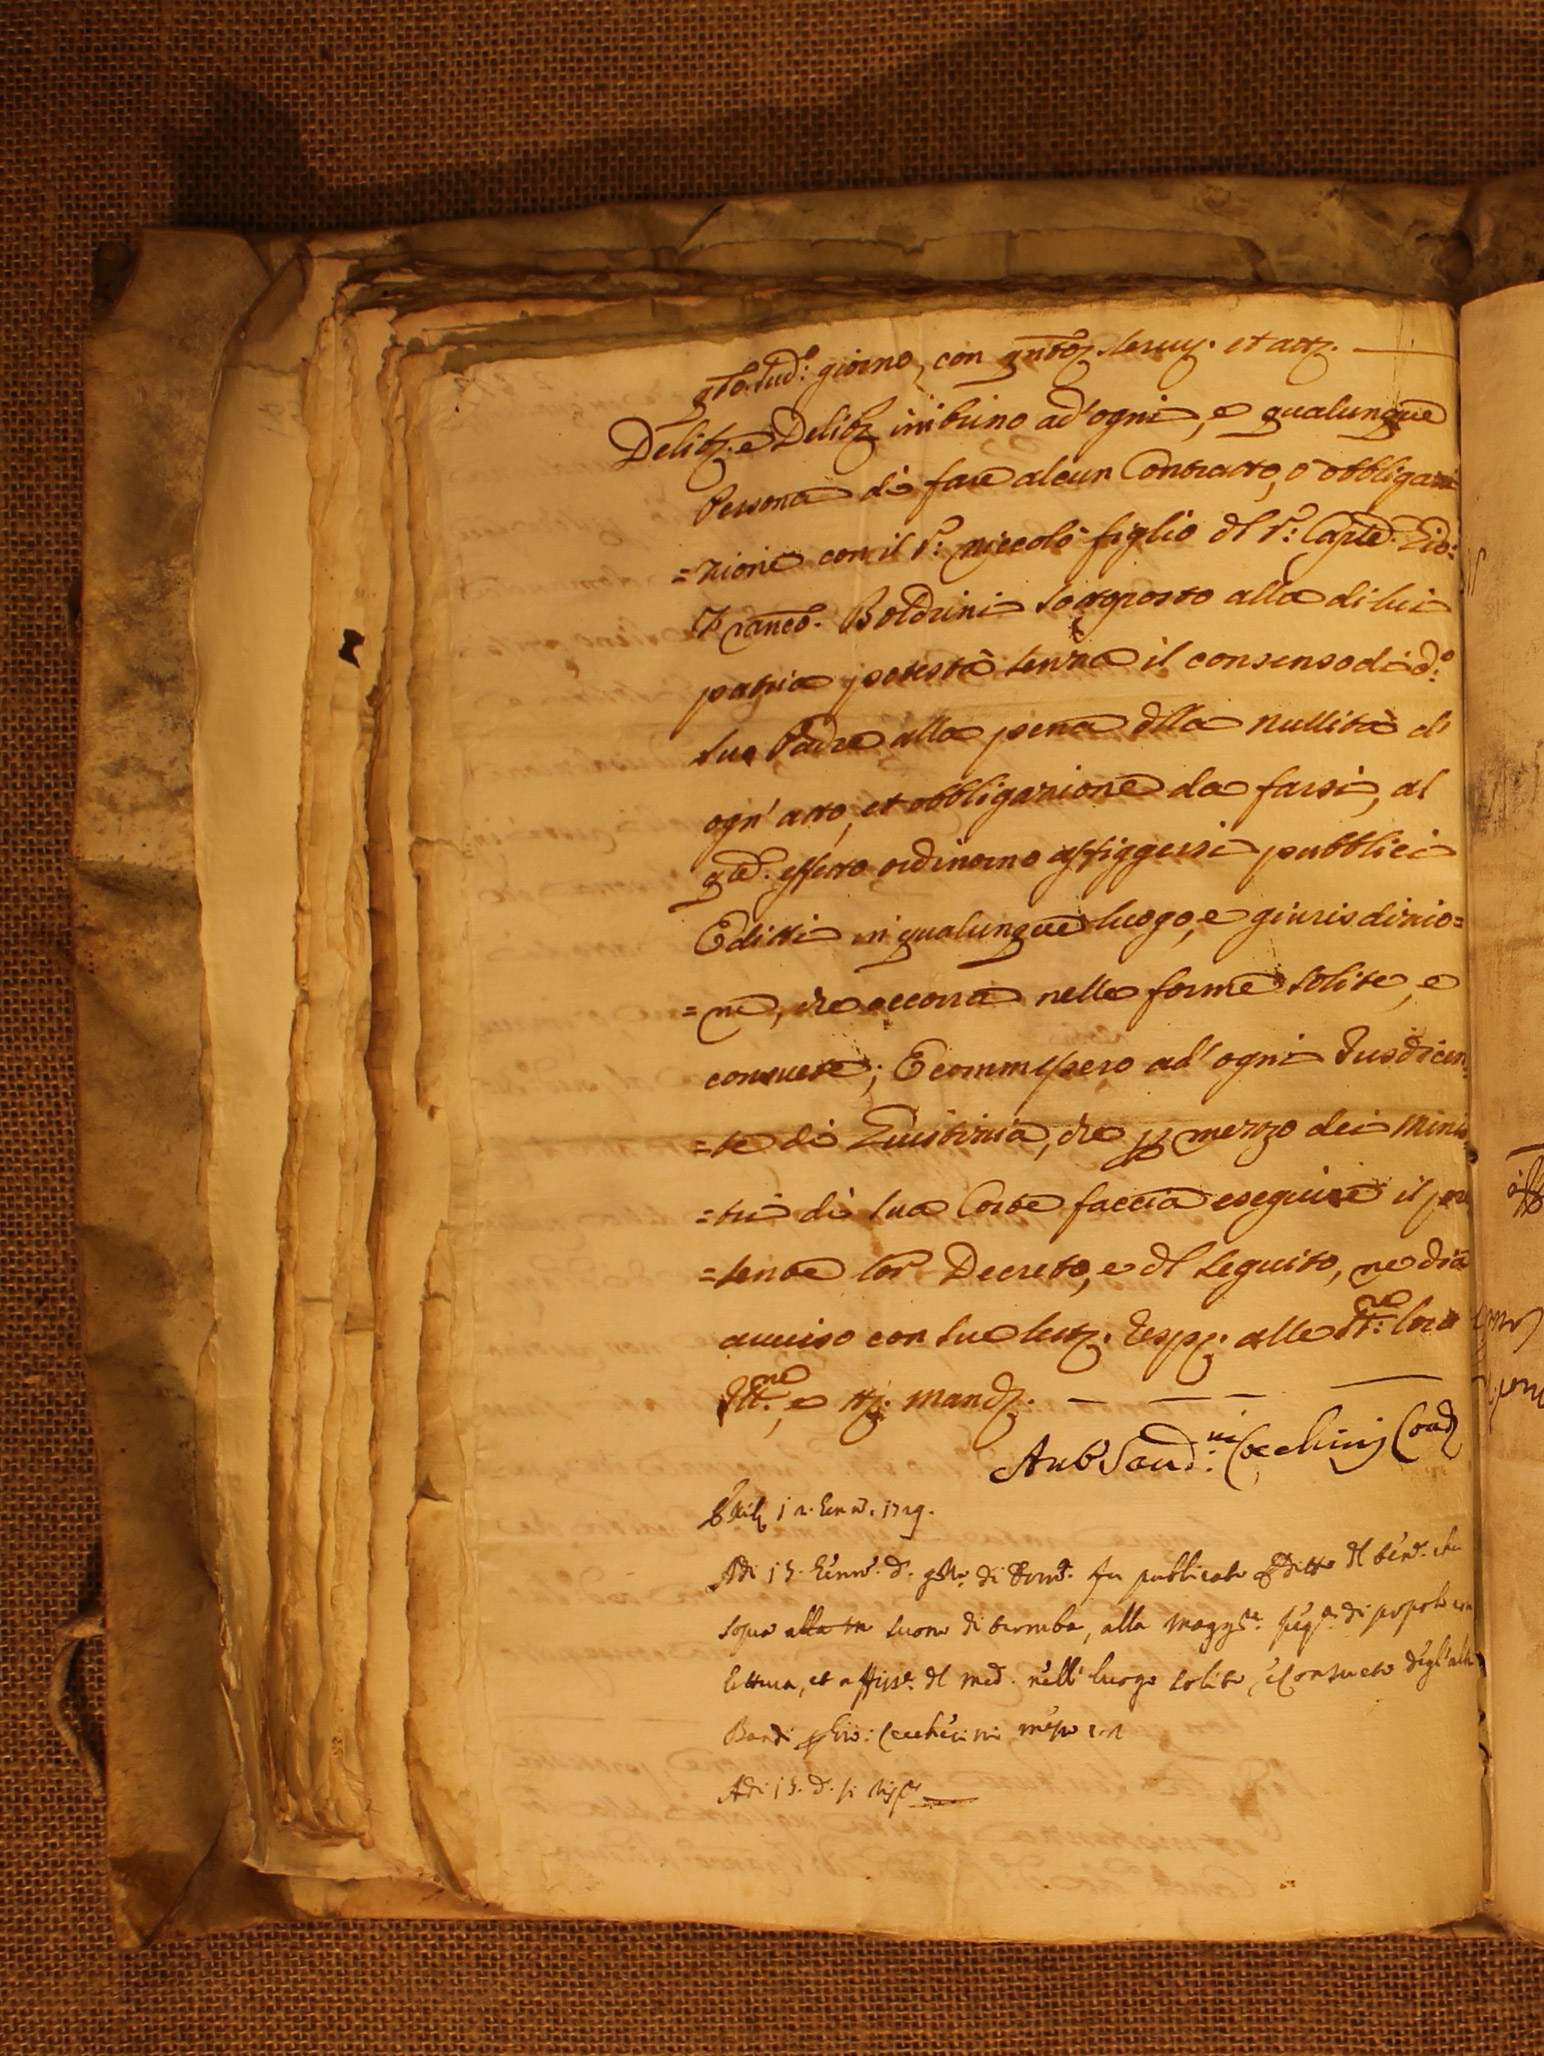 gto. sud.o giorno, con gntoz. seruz. et attz.
Delibz. e Delibz. inibirno ad' ogni, e qualunque
Persona di fare alcun Contratto, o obbliga
=zione con il S.r niccolò figlio dl S.r Capte. Gio:
Franco. Boldrini sottoposto alla di lui
patria potestà senza il consenso di d.o
suo Padre alla pena dlla nullità d'
ogn' atto, et obbligazione da farsi, al
qle. effetto ordinorno affiggersi pubblici
Editti in qualunque luogo, e giurisdizio=
=ne, che occorra nelle forme solite, e
consuete; E commessero ad' ogni Jusdicen
=te di Giustizia, che p mezzo dei Mini
=tri di sua Corte faccia eseguire il pre
=sente lor Decreto, e dl seguito, ne dia
auuiso con sue lettz. alle loro
e mandz.
Cecchinj
12. Genn.o 1729.
Adi 15. Genn.o d.o fu pubblicato Editto dl che
sopra alla in suono di tromba, alla magg.re di popolo con
lettura, et affiss.e dl med.o nell' luogo solito, e Consueto degl' altri
Bandi p Gio: Cecchicini messo
Adi 15. d.o si